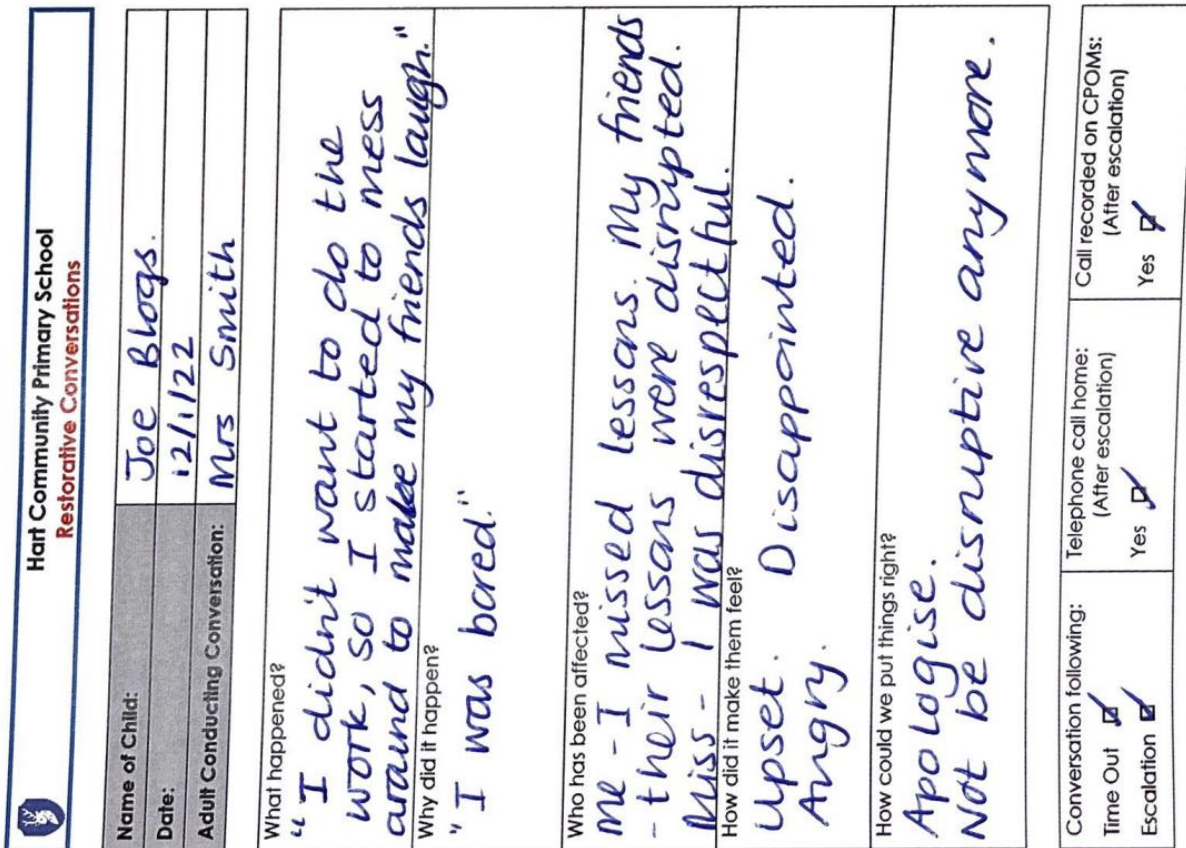 Hart Community Primary School
Restorative Conversations
Name of Child: Joe Blogs.
Date: 12/1/22
Adult Conducting Conversation: Mrs Smith
What happened?
"I didn't want to do the
work, so I started to mess
around to make my friends laugh."
Why did it happen?
"I was bored."
Who has been affected?
me - I missed lessons. My friends
- their lessons were disrupted.
Miss - I was disrespectful.
How did it make them feel?
Upset. Disappointed.
Angry.
How could we put things right?
Apologise.
Not be disruptive anymore.
Conversation following:
Time Out
Escalation
Telephone call home:
(After escalation)
Yes
Call recorded on CPOMs:
(After escalation)
Yes